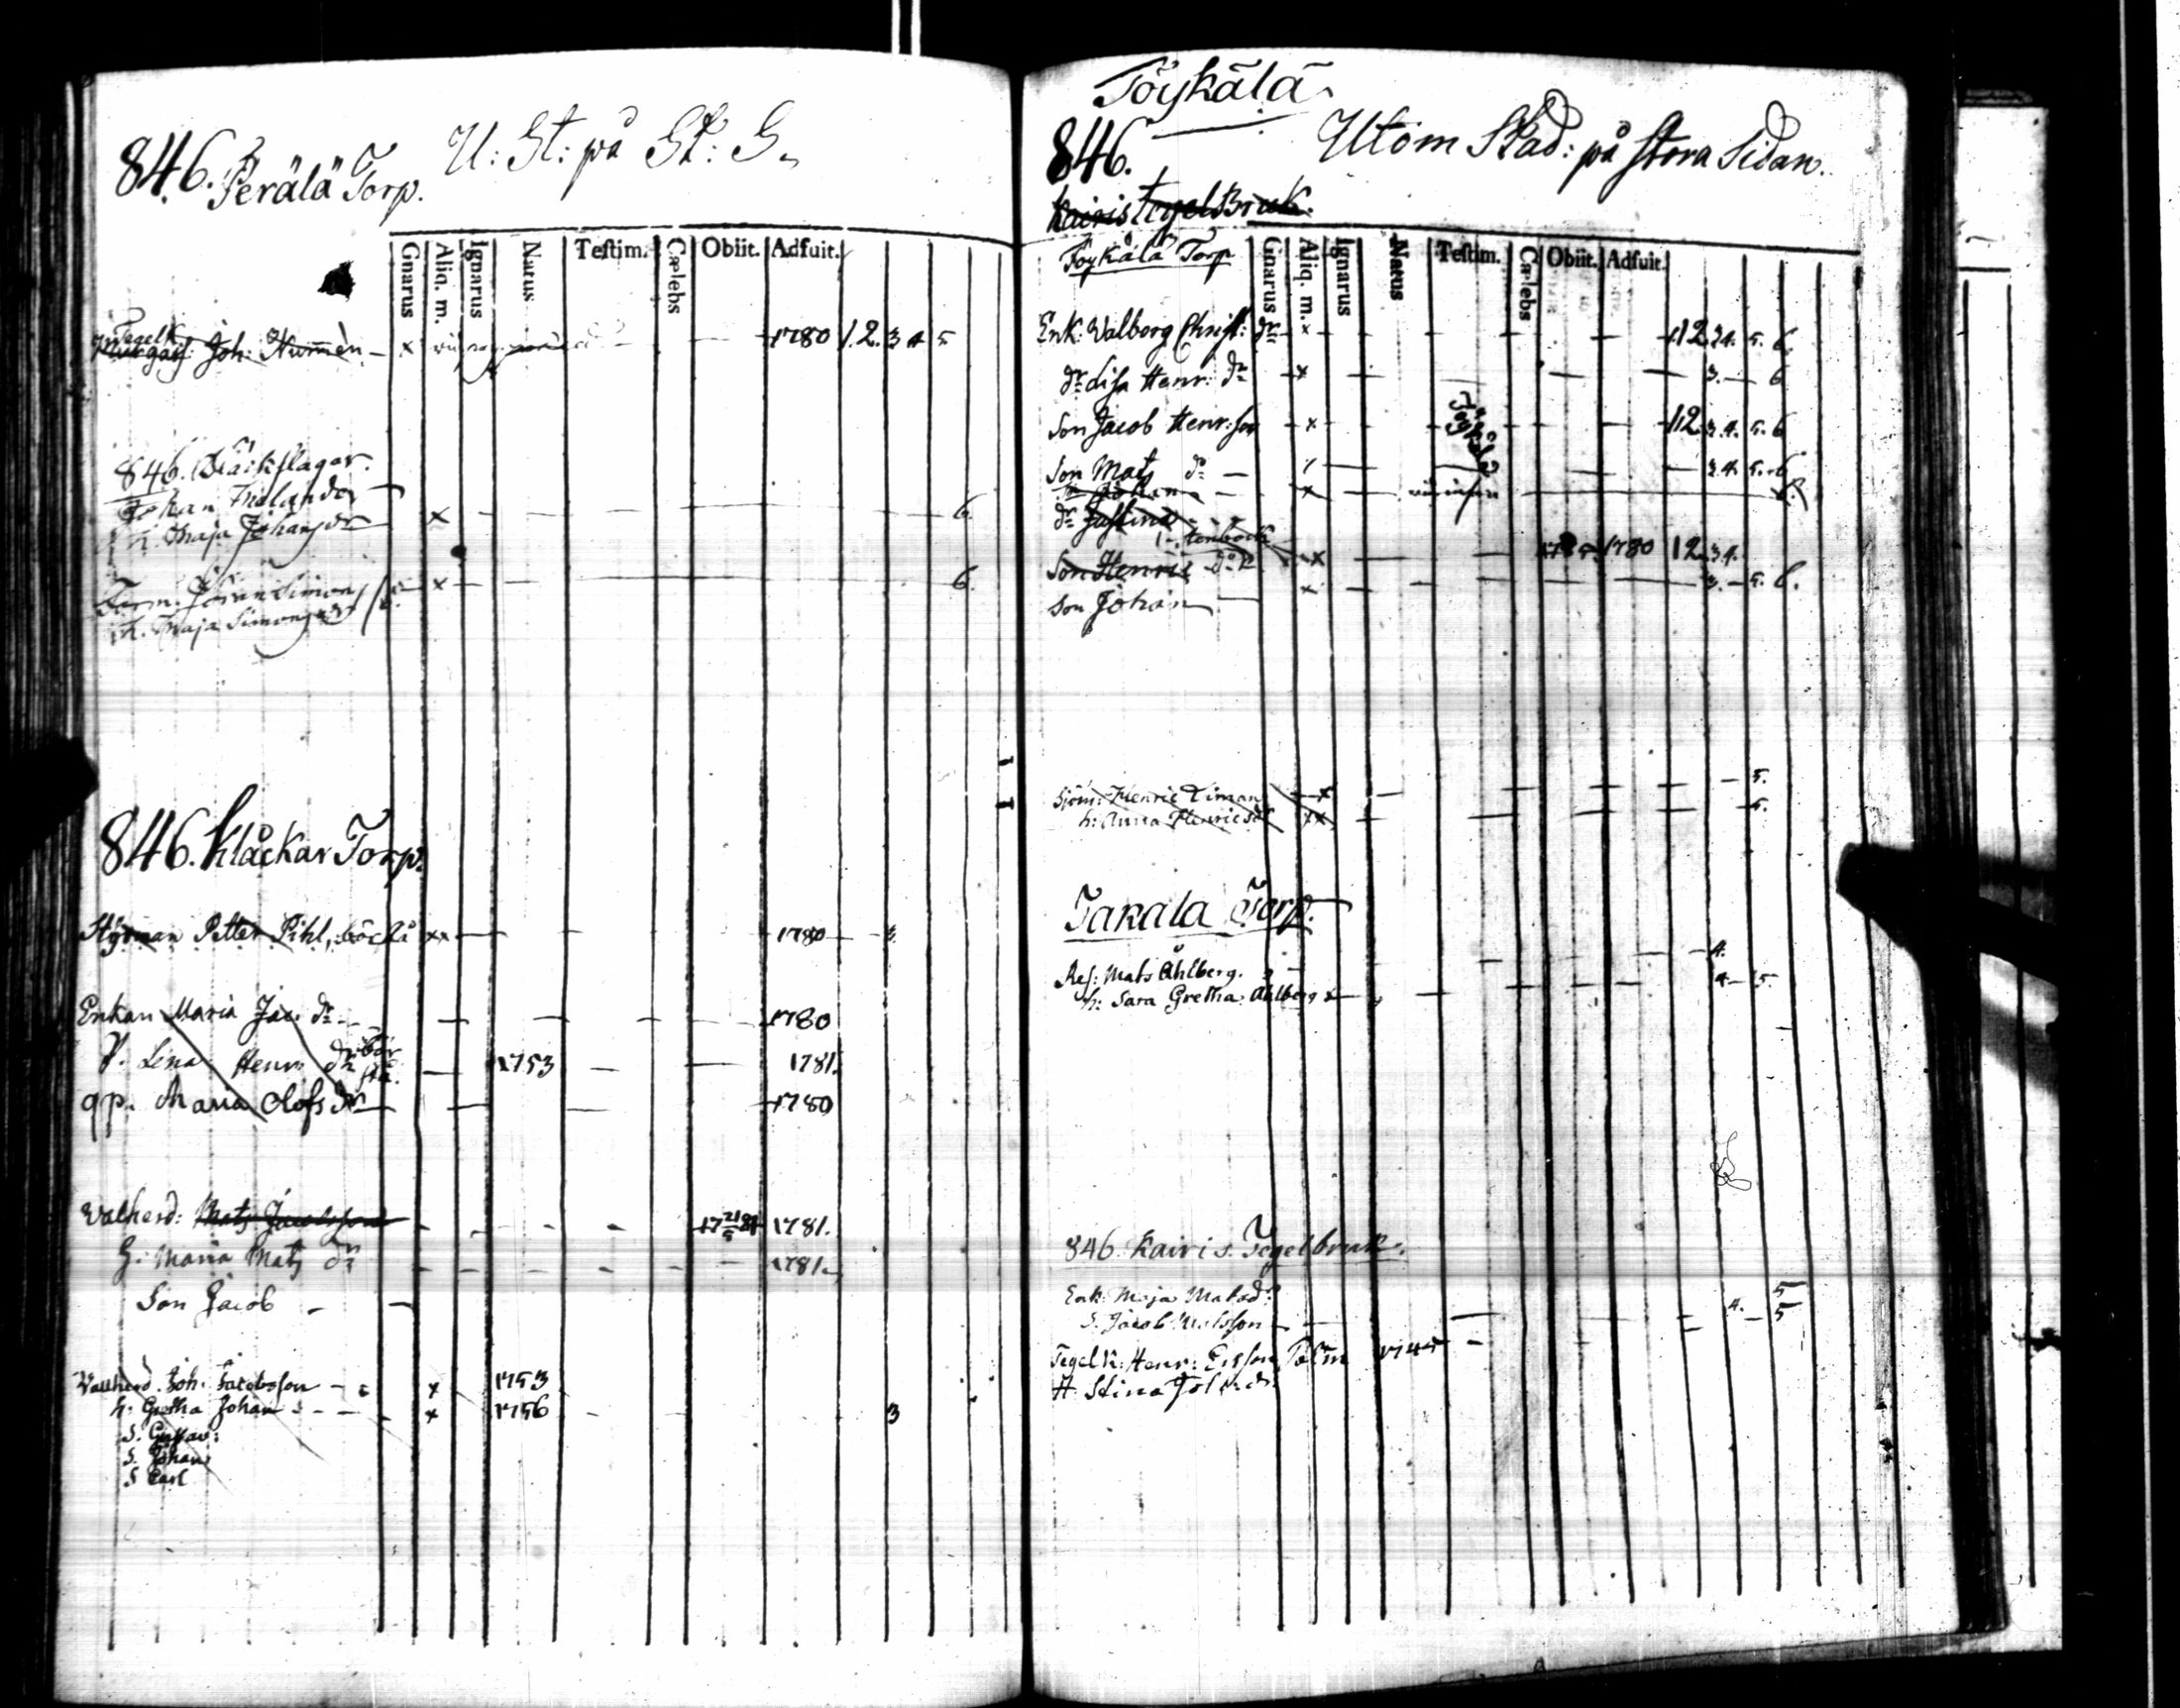 846. Perälä Torp. U: St: på St: S.
Gnarus Aliq. m. Ignarus Natus Testim. Cælebs Obiit. Adfuit.
Tegelk
Joh: Numèn - x 1780 1. 2. 3 4 5
846. Bäckslagar.
Johan Melander
h. Maja Johansdr x 6.
Torm. Johan Simons x 6.
h. Maja Simonsdr
846. Klåckar Torp.
Styrman Petter Pihl, xx 1780 3.
Enkan Maria Jac. dr 1780
P. Lena Henr. dr 1753 1781.
qp. Maria Olofs dr 1780
Walherd: Mats Jacobsson 17 21/5 81 1781.
H. Maria Mats dr 1781.
Son Jacob
Vallherd. Joh. Jacobsson x 1753
h. Gretha Johan x 1756 3
S. Gustav:
S. Johan
S Carl
Töykälä
846. Utom Stad: på stora Sidan.
Kairis TegelBruk.
Töykälä Torp
Gnarus Aliq. m. Ignarus Natus Testim. Cælebs Obiit. Adfuit.
Enk: Walborg Christ: dr x 12 3 4. 5. 6.
dr Lisa Henr: dr x 3. 6
Son Jacob Henr: son x 12 3. 4. 5. 6
Son Mats do 3. 4. 5. 6
Johan x
dr Justina
Son Henric do x 1780 12 3 4.
Son Johan x 3. 5. 6.
Sjöm: Henric Timan x 5.
h: Anna Henricsdr xx 5.
Takala Torp.
Ref: Mats Ahlberg. 4.
h: Sara Gretha Ahlberg x 4 5.
846. Kairis. Tegelbruk.
Enk: Maja Matsdr 5
S. Jacob Matsson 4. 5
Tegelk: Henr: Ersson Palm 1745
H. Stina